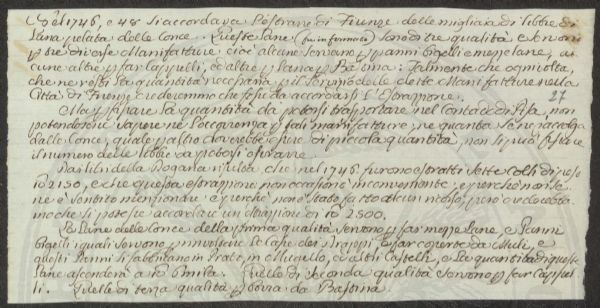 Nel 1746, e 48 si accordava l'estrarre di Firenze delle migliaia di libbre di
Lana pelata delle Conce. Queste Lane (fu in fermo) sono di tre qualità e servono
per tre diverse Manifatture cioè alcune servano p panni bigelli e mezze lane, al
cune altre p far Cappelli, ed altre p Lana p Bassina: Talmente che ogni volta,
che ne resti la quantità necessaria p il servizio delle dette Manifatture nella
Città di Firenze crederemmo che fosse da accordarsi l'Estrazione.
27
Ma p fissare la quantità da potersi trasportare nel Contado di Pisa, non
potendo sapere ne l'occorrenza p tali manifatture, ne quanta se ne raccolga
dalle Conce, quale p altro dovrebbe essere di piccola quantità, non si può fissare
il numero delle libbre da potersi estrarre.
Dai libri della Dogana risulta che nel 1746 furono estratti sette colli di peso
lb 2150, e che questa estrazione non occasionò inconveniente, e perchè non se
ne è sentito menzionare e perchè non è stato fatto alcun ricorso, però crederebba
mo che si potesse accordare un'estrazione di lb 2800.
Le Lane delle Conce della prima qualità servono p far mezze Lane, e Panni
bigelli i quali servono p involgere le Casse dei Drappi, e far coperte da Muli, e
questi Panni si fabbricano in Prato, in Mugello, ed altri Castelli, e la quantità di queste
Lane ascenderà a lb 6 mila. Quelle di seconda qualità servono p far Cappel
li. Quelle di terza qualità p borra da Bastina.